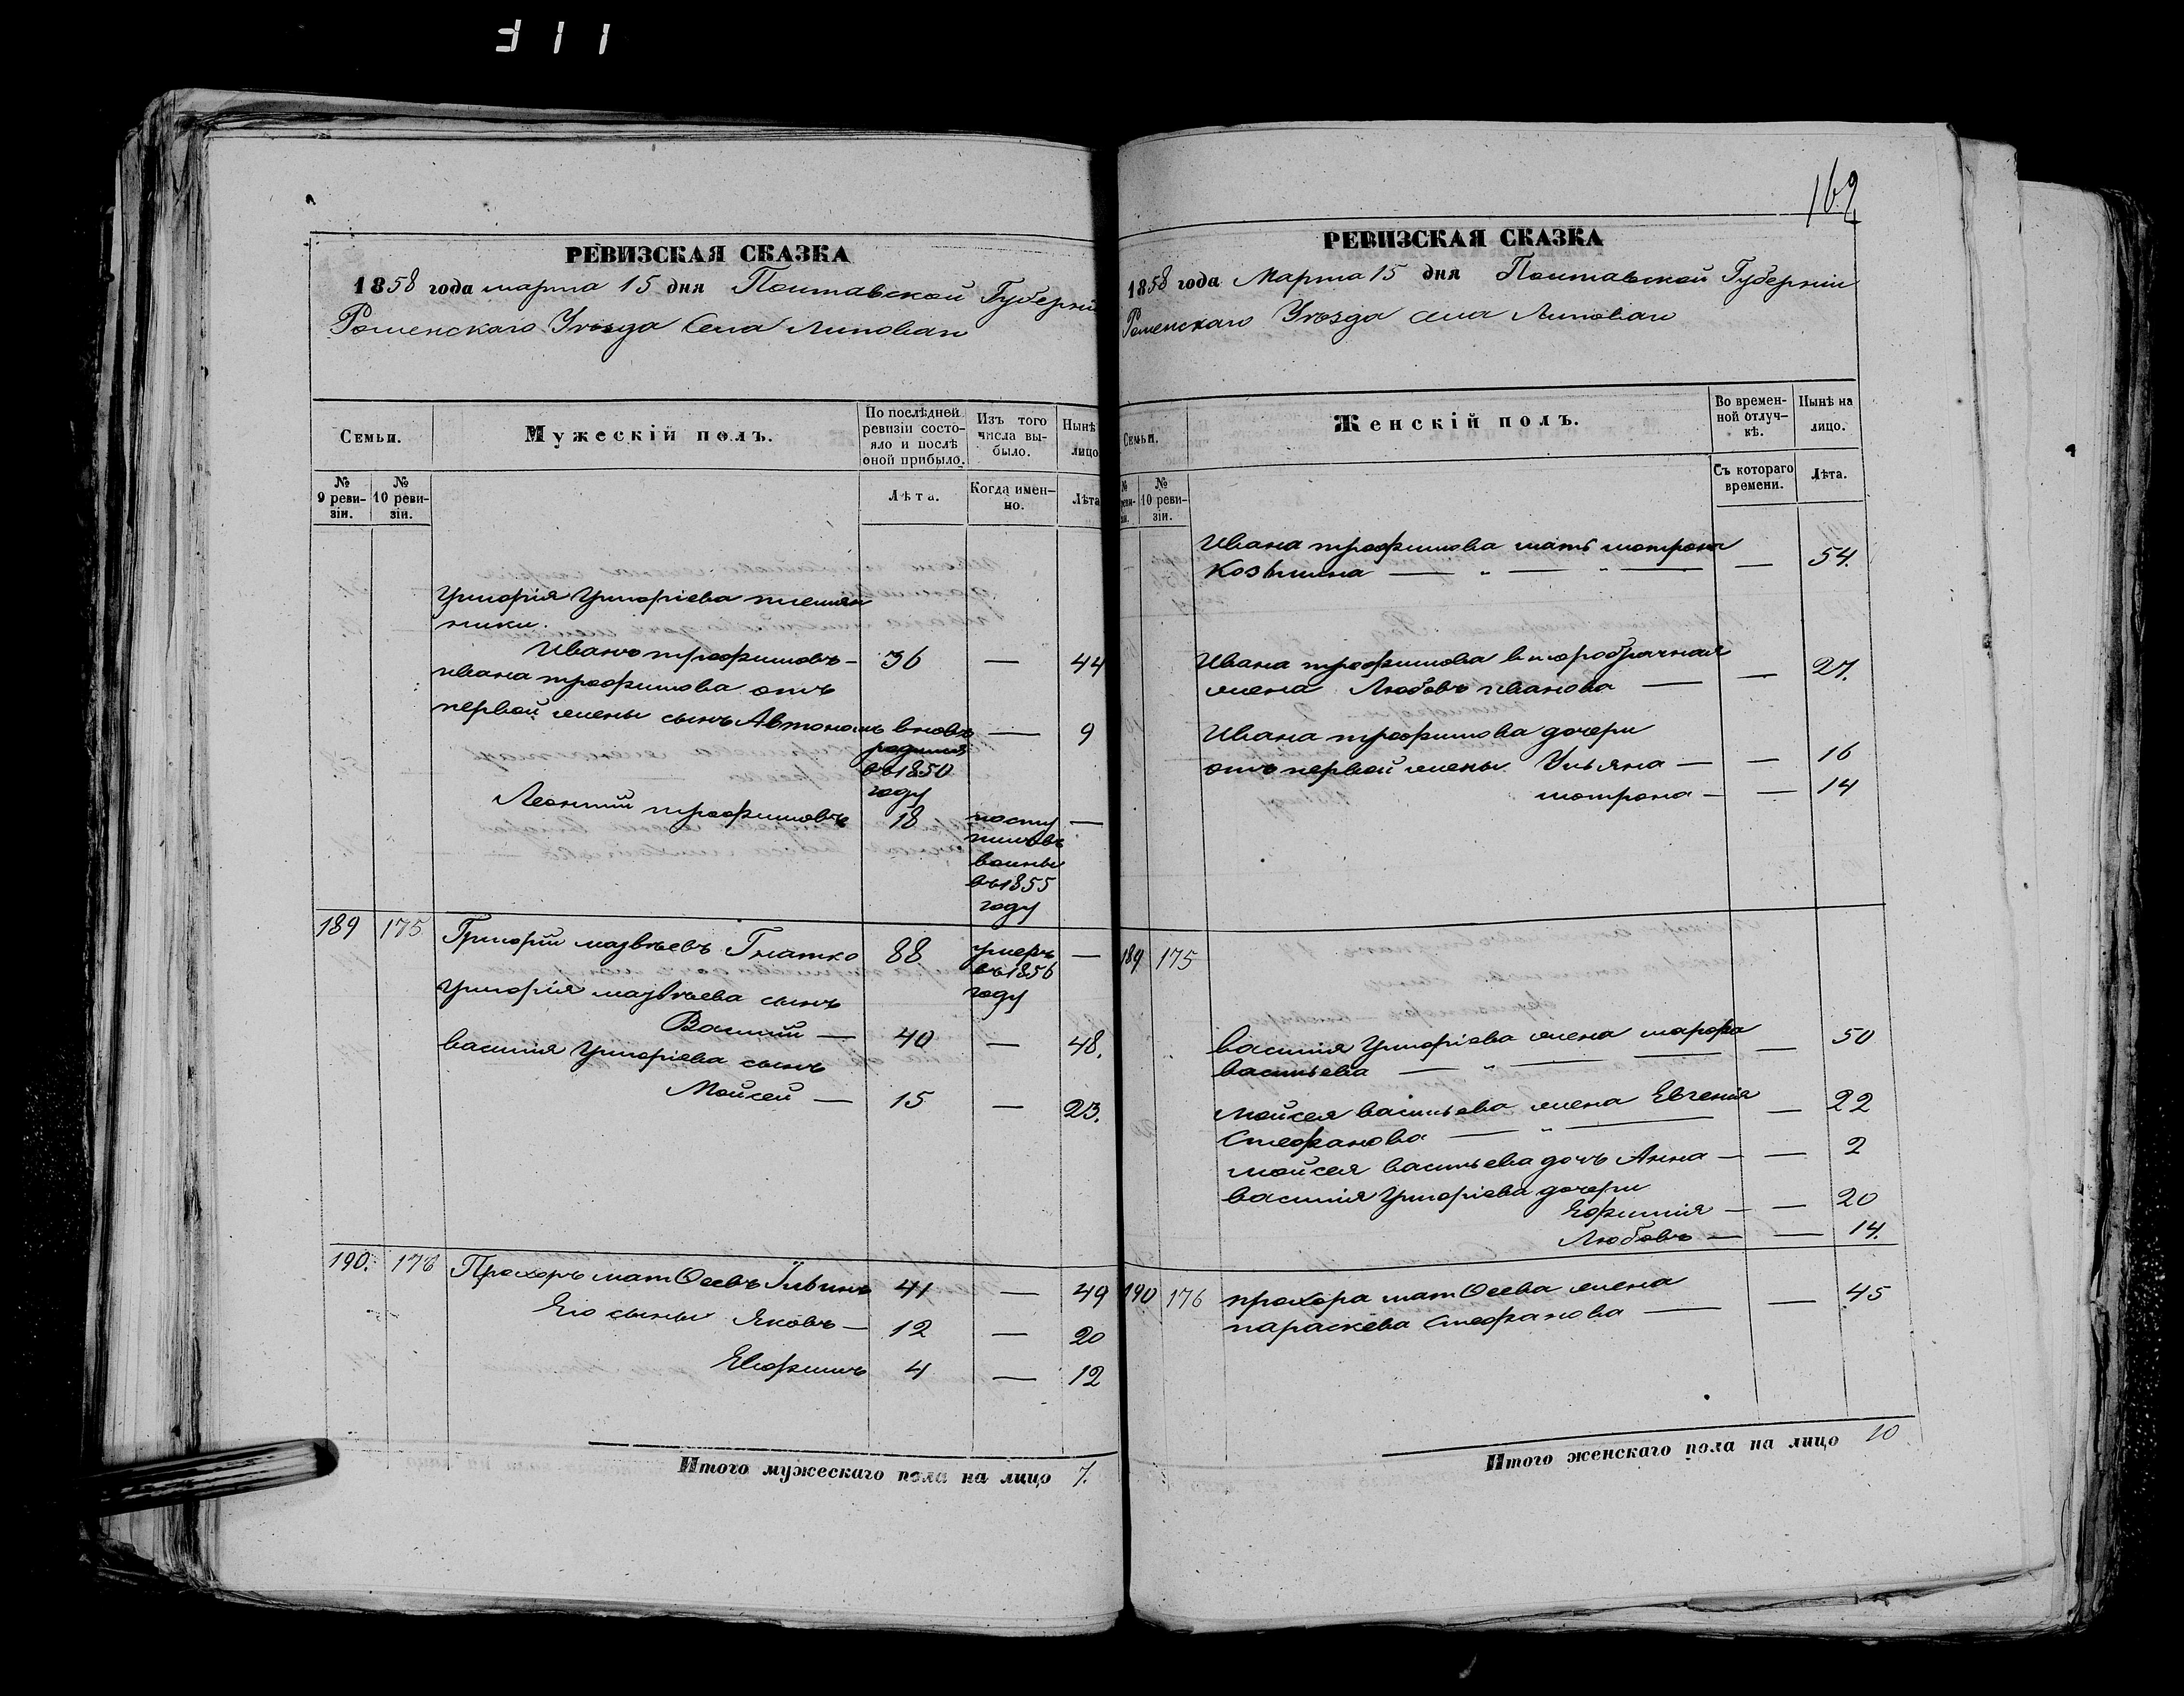 РЕВИЗСКАЯ СКАЗКА
1858 года марта 15 дня Полтавской Губерніи
Роменскаго Уѣзда Села Липоваго
Семьи.
Мужескій полъ.
По послѣдней ревизіи состояло и послѣ оной прибыло.
Изъ того числа выбыло.
Нынѣ на лицо
№ 9 ревизіи.
№ 10 ревизіи.
Лѣта.
Когда именно.
Лѣта
Григорія Григоріева племян
ники.
Иванъ трофимовъ — 36 — 44
ивана трофимова отъ
первой жены сынъ Автономъ вновь — 9
родился
въ 1850
году
Леонтий трофимовъ 18 посту —
пилъ въ
воины
въ 1855
году
189 175 Григорій матвѣевъ Гнатко 88 умеръ —
въ 1856
году
Григорія матвѣева сынъ
Василій — 40 — 48.
василія Григоріева сынъ
Мойсей — 15 — 23.
190. 176 Прохоръ матѲеевъ Ильинъ 41 — 49
Его сыны Яковъ — 12 — 20
Евфимъ 4 — 12
Итого мужескаго пола на лицо 7.
162
РЕВИЗСКАЯ СКАЗКА
1858 года Марта 15 дня Полтавской Губерніи
Роменскаго Уѣзда села Липоваго
Семьи.
Женскій полъ.
Во временной отлучкѣ.
Нынѣ на лицо.
№ 10 ревизіи.
Съ котораго времени.
Лѣта.
Ивана трофимова мать мотрона
Козьмина — " — " — — 54.
Ивана трофимова второбрачная
жена Любовь иванова — — 27.
Ивана трофимова дочери
отъ первой жены Ульяна — — 16
мотрона — — 14
189 175
василія Григоріева жена марфа
васильева — " — — — 50
мойсея васильева жена Евгенія
Стефанова — " — — 22
мойсея васильева дочь Анна — — 2
василія Григоріева дочери
Ефимія — — 20
Любовь — — 14.
190 176 прохора матѲеева жена
параскева стефанова — — 45
Итого женскаго пола на лицо 10